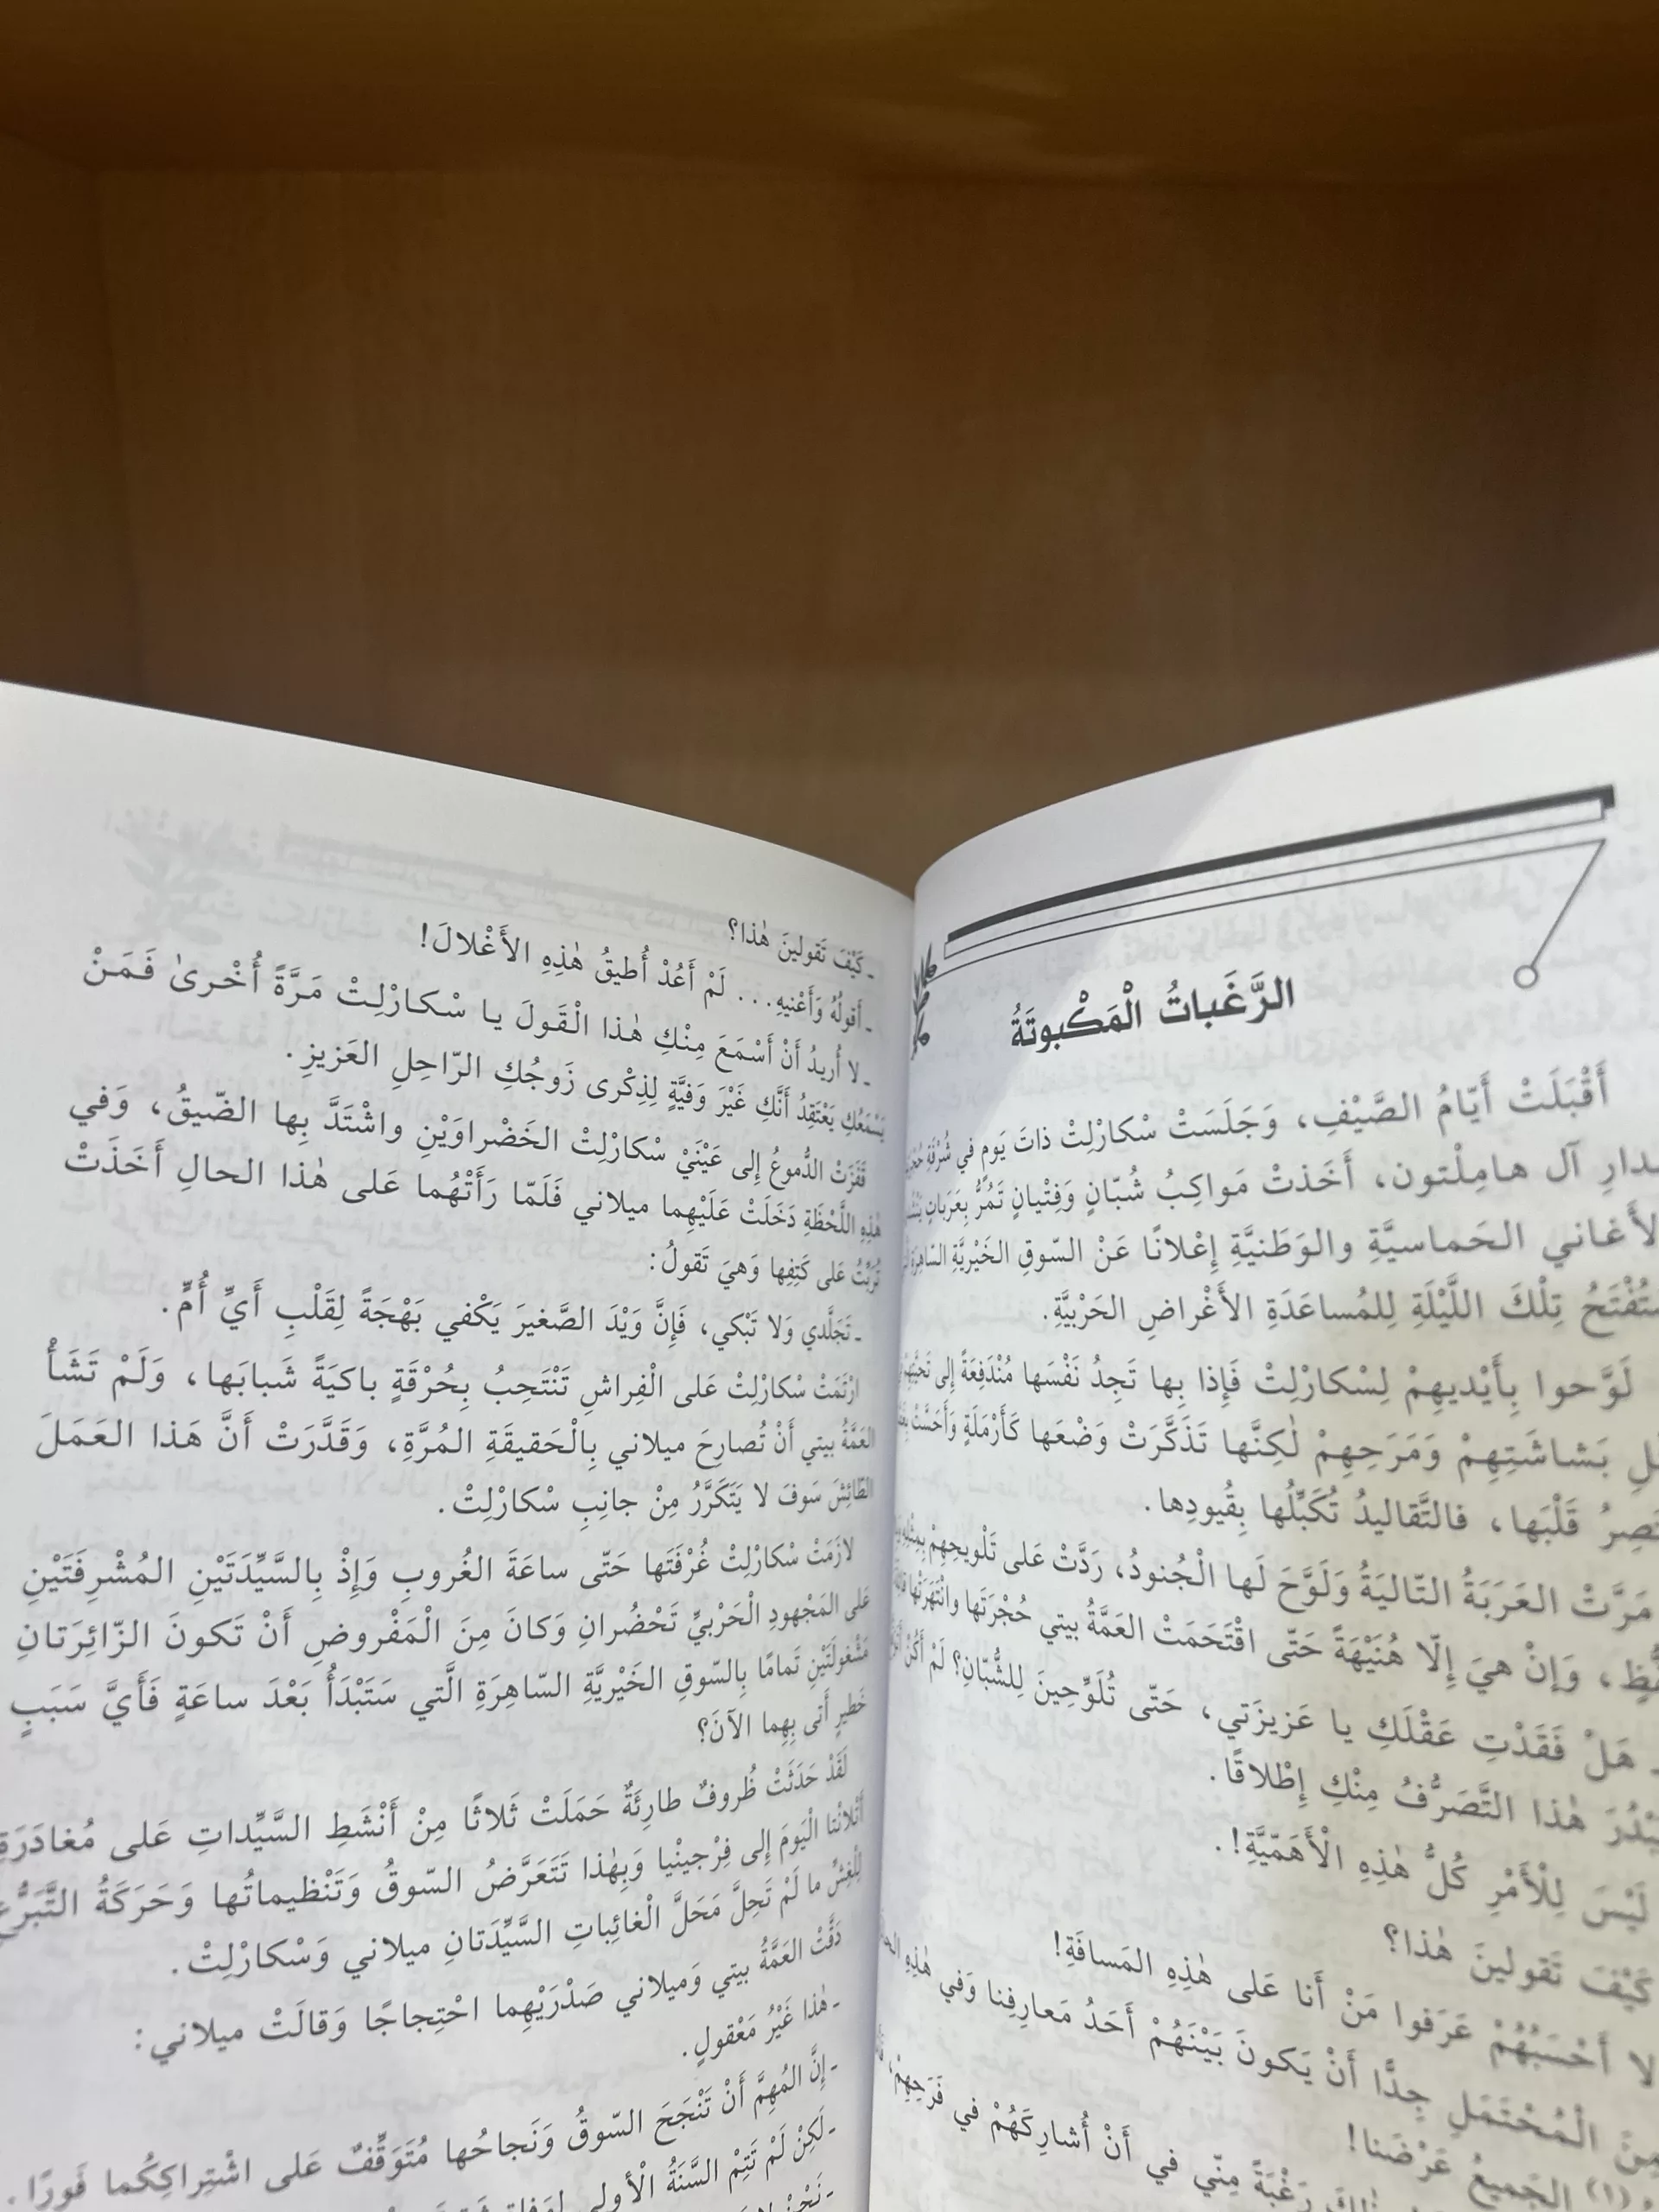 الرَّغَباتُ الْمَكْبوتَةُ
أَقْبَلَتْ أَيّامُ الصَّيْفِ، وَجَلَسَتْ سْكارْلِتْ ذاتَ يَومٍ في شُرْفَةِ
آل هامِلْتون، أَخَذتْ مَواكِبُ شُبّانٍ وَفِتْيانٍ تَمُرُّ بِعَرَباتٍ
الأَغاني الحَماسيَّةِ والوَطَنيَّةِ إِعْلانًا عَنْ السّوقِ الخَيْريَّةِ السّاهِرَةِ
تِلْكَ اللَّيْلَةِ لِلمُساعَدَةِ الأَغْراضِ الحَرْبيَّةِ.
لَوَّحوا بِأَيْديهِمْ لِسْكارْلِتْ فَإِذا بِها تَجِدُ نَفْسَها مُنْدَفِعَةً إِلى
بَشاشَتِهِمْ وَمَرَحِهِمْ لٰكِنَّها تَذَكَّرَتْ وَضْعَها كَأَرْمَلَةٍ وَأَحَسَّتْ
قَلْبَها، فالتَّقاليدُ تُكَبِّلُها بِقُيودِها.
مَرَّتْ العَرَبَةُ التّاليَةُ وَلَوَّحَ لَها الْجُنودُ، رَدَّتْ عَلى تَلْويحِهِمْ
وَإِنْ هيَ إِلّا هُنَيْهَةً حَتّى اقْتَحَمَتْ العَمَّةُ بيتي حُجْرَتَها وانْتَهَرَتْها
هَلْ فَقَدْتِ عَقْلَكِ يا عَزيزَتي، حَتّى تُلَوِّحينَ لِلشُّبّانِ؟ لَمْ أَكُنْ
هٰذا التَّصَرُّفُ مِنْكِ إِطْلاقًا.
لَيْسَ لِلْأَمْرِ كُلُّ هٰذِهِ الْأَهَمّيَّةِ!.
كَيْفَ تَقولينَ هٰذا؟
لا أَحْسَبُهُمْ عَرَفوا مَنْ أَنا عَلى هٰذِهِ المَسافَةِ!
الْمُحْتَمَلِ جِدًّا أَنْ يَكونَ بَيْنَهُمْ أَحَدُ مَعارِفِنا وَفي هٰذِهِ
الجَميعُ عَرْضَنا!
رَغْبَةً مِنّي في أَنْ أُشارِكَهُمْ في فَرَحِهِمْ،
ـ كَيْفَ تَقولينَ هٰذا؟
ـ أَقولُهُ وَأَعْنيهِ... لَمْ أَعُدْ أُطيقُ هٰذِهِ الأَغْلالَ!
ـ لا أُريدُ أَنْ أَسْمَعَ مِنْكِ هٰذا الْقَولَ يا سْكارْلِتْ مَرَّةً أُخْرىٰ فَمَنْ
يَسْمَعُكِ يَعْتَقِدُ أَنَّكِ غَيْرَ وَفيَّةٍ لِذِكْرى زَوجُكِ الرّاحِلِ العَزيزِ.
قَفَزَتْ الدُّموعُ إِلى عَيْنَيْ سْكارْلِتْ الخَضْراوَيْنِ واشْتَدَّ بِها الضّيقُ، وَفي
هٰذِهِ اللَّحْظَةِ دَخَلَتْ عَلَيْهِما ميلاني فَلَمّا رَأَتْهُما عَلى هٰذا الحالِ أَخَذَتْ
تُرَبِّتُ عَلى كَتِفِها وَهيَ تَقولُ:
ـ تَجَلَّدي وَلا تَبْكي، فَإِنَّ وَيْدَ الصَّغيرَ يَكْفي بَهْجَةً لِقَلْبِ أَيِّ أُمٍّ.
ارْتَمَتْ سْكارْلِتْ عَلى الْفِراشِ تَنْتَحِبُ بِحُرْقَةٍ باكيَةً شَبابَها، وَلَمْ تَشَأْ
العَمَّةُ بيتي أَنْ تُصارِحَ ميلاني بِالْحَقيقَةِ المُرَّةِ، وَقَدَّرَتْ أَنَّ هَذا العَمَلَ
الطّائِشَ سَوفَ لا يَتَكَرَّرُ مِنْ جانِبِ سْكارْلِتْ.
لازَمَتْ سْكارْلِتْ غُرْفَتَها حَتّى ساعَةَ الغُروبِ وَإِذْ بِالسَّيِّدَتَيْنِ المُشْرِفَتَيْنِ
عَلى المَجْهودِ الْحَرْبيِّ تَحْضُرانِ وَكانَ مِنَ الْمَفْروضِ أَنْ تَكونَ الزّائِرَتانِ
مَشْغولَتَيْنِ تَمامًا بِالسّوقِ الخَيْريَّةِ السّاهِرَةِ الَّتي سَتَبْدَأُ بَعْدَ ساعَةٍ فَأَيَّ سَبَبٍ
خَطيرٍ أَتى بِهِما الآنَ؟
لَقَدْ حَدَثَتْ ظُروفٌ طارِئَةٌ حَمَلَتْ ثَلاثًا مِنْ أَنْشَطِ السَّيِّداتِ عَلى مُغادَرَةِ
أَتْلانْتا الْيَومَ إِلى فِرْجينْيا وَبِهٰذا تَتَعَرَّضُ السّوقُ وَتَنْظيماتُها وَحَرَكَةُ التَّبَرُّعِ
لِلْغِشِّ ما لَمْ تَحِلَّ مَحَلَّ الْغائِباتِ السَّيِّدَتانِ ميلاني وَسْكارْلِتْ.
دَقَّتْ العَمَّةُ بيتي وَميلاني صَدْرَيْهِما احْتِجاجًا وَقالَتْ ميلاني:
ـ هٰذا غَيْرُ مَعْقولٍ.
ـ إِنَّ المُهِمَّ أَنْ تَنْجَحَ السّوقُ وَنَجاحُها مُتَوَقِّفٌ عَلى اشْتِراكِكُما فَورًا.
ـ لَكِنْ لَمْ تَتِمْ السَّنَةُ الْأولى
ـ نَحْنُ